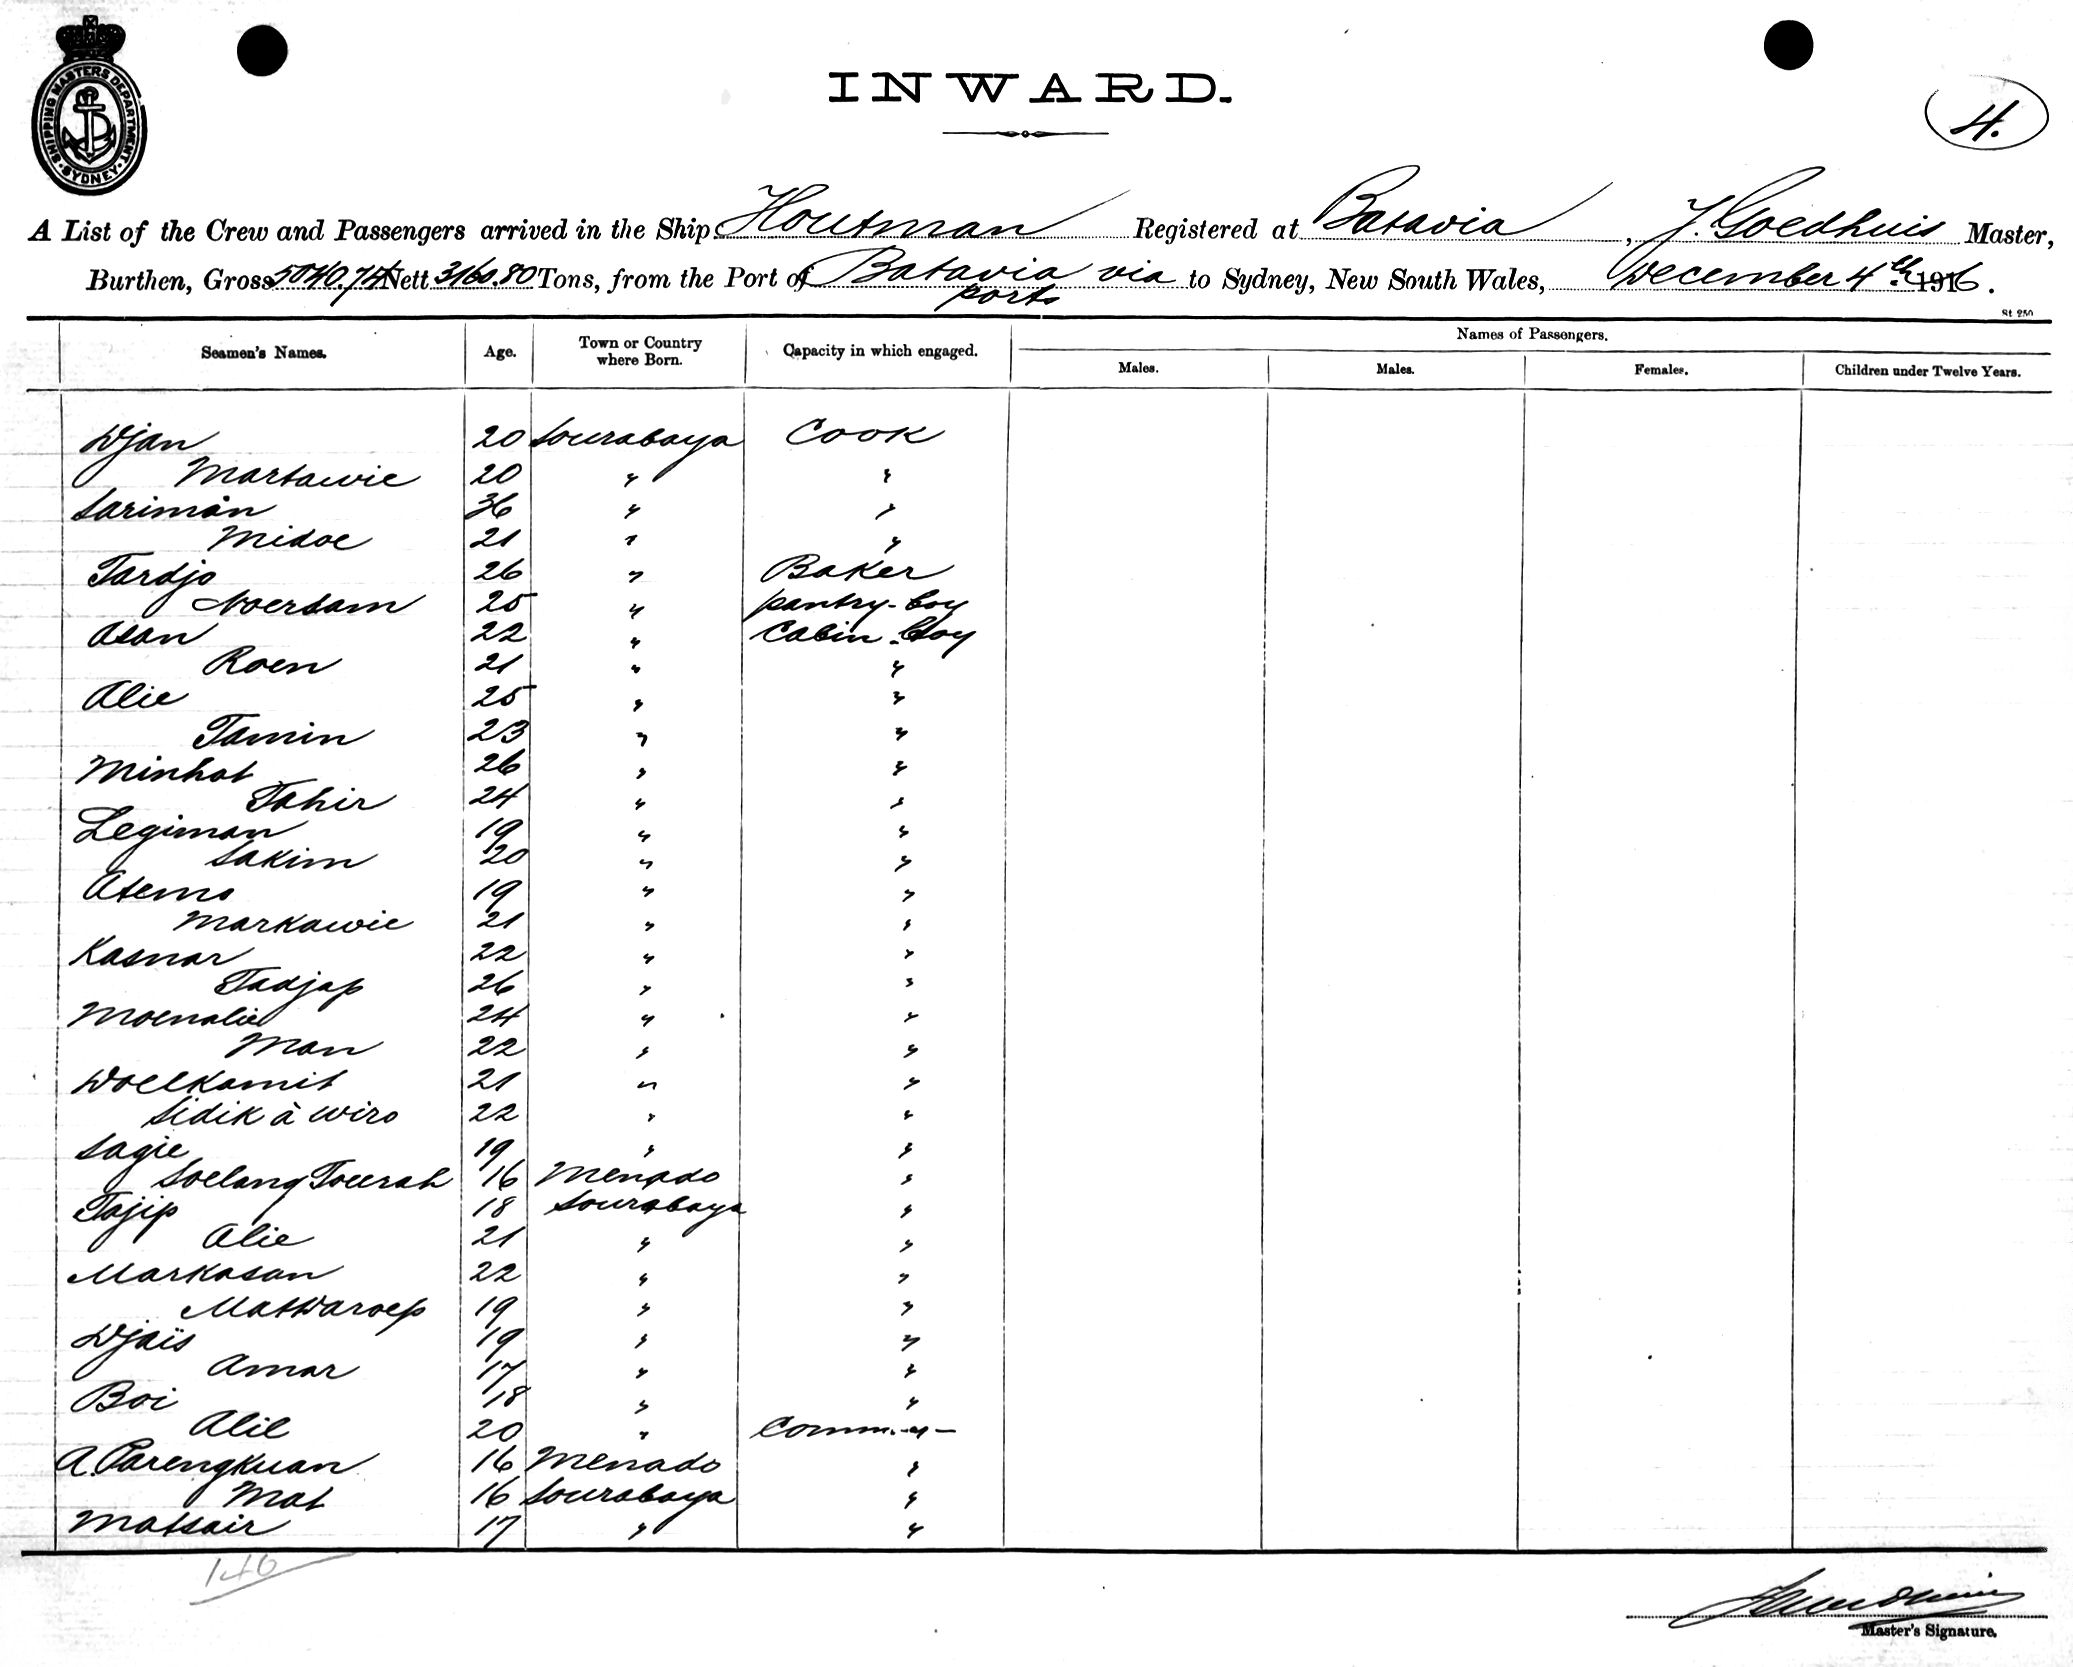 SHIPPING MASTERS DEPARTMENT
SYDNEY
INWARD.
4.
A List of the Crew and Passengers arrived in the Ship Houtman Registered at Batavia, J. Goedhuis Master,
Burthen, Gross 5040.74 Nett 3160.80 Tons, from the Port of Batavia via ports to Sydney, New South Wales, December 4th 1916.
St 250
Seamen's Names. Age. Town or Country where Born. Capacity in which engaged. Names of Passengers.
Males. Males. Females. Children under Twelve Years.
Djan 20 Sourabaya Cook
Martawie 20 " "
Sariman 36 " "
Midoe 21 " "
Tardjo 26 " Baker
Noersam 25 " pantry-boy
Asan 22 " Cabin-boy
Roen 21 " "
Alie 25 " "
Tamin 23 " "
Minhat 26 " "
Tahir 24 " "
Legiman 19 " "
Sakim 20 " "
Atemo 19 " "
Markawie 21 " "
Kasnar 22 " "
Tadjap 26 " "
Moenalie 24 " "
Man 22 " "
Doelkamit 21 " "
Sidik à wiro 22 " "
Sagie 19 " "
Soelang Toerah 16 Menado "
Tajip 18 Sourabaya "
Alie 21 " "
Markasan 22 " "
Matdaroep 19 " "
Djaïs 19 " "
Amar 17 " "
Boi 18 " "
Alil 20 " Comm.-"-
A. Parengkuan 16 Menado "
Mat 16 Sourabaya "
Matsair 17 " "
140
Master's Signature.